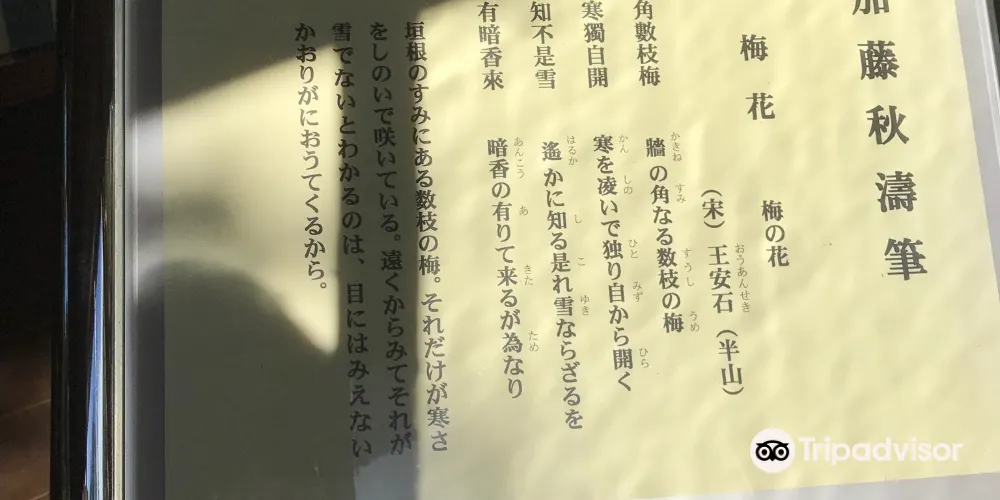 加藤秋濤筆
梅花
梅の花
(宋)王安石(半山)
おうあんせき
角數枝梅
寒獨自開
知不是雪
有暗香來
牆の角なる数枝の梅
かきね すみ すうし うめ
寒を凌いで独り自から開く
かん しの ひと みず ひら
遙かに知る是れ雪ならざるを
はるか し こ ゆき
暗香の有りて来るが為なり
あんこう あ きた ため
垣根のすみにある数枝の梅。それだけが寒さ
をしのいで咲いている。遠くからみてそれが
雪でないとわかるのは、目にはみえない
かおりがにおうてくるから。
Tripadvisor